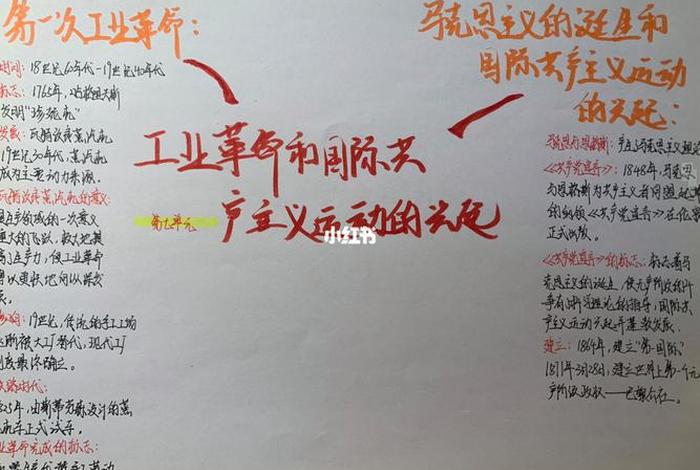 第一次工业革命：
时间：18世纪60年代-19世纪40年代
1765年，哈格里夫斯
发明“珍妮机”
瓦特改良蒸汽机
19世纪30年代，蒸汽机
成为主要动力来源。
瓦特改良蒸汽机的意义
重大的飞跃，极大地提
高了生产力，使工业革命
得以更快地向纵深发
展。
19世纪，传统的手工工场
逐渐被大工厂替代，现代工厂
制度最终确立。
铁路时代：
由斯蒂芬森设计的蒸
汽机车正式试车。
业革命完成的标志：
工业革命和国际共
产主义运动的兴起
第七单元
小红书
马克思主义的诞生和
国际共产主义运动
的兴起：
《共产党宣言》：1848年，马克思
与恩格斯为共产主义者同盟起草
的纲领《共产党宣言》在伦敦
正式出版。
《共产党宣言》的标志：标志着马
克思主义的诞生，使无产阶级的斗
争有了科学理论的指导，国际共
产主义运动兴起并蓬勃发展。
建立：1864年，建立“第一国际”
1871年3月28日，建立世界上第一个无
产阶级政权——巴黎公社。